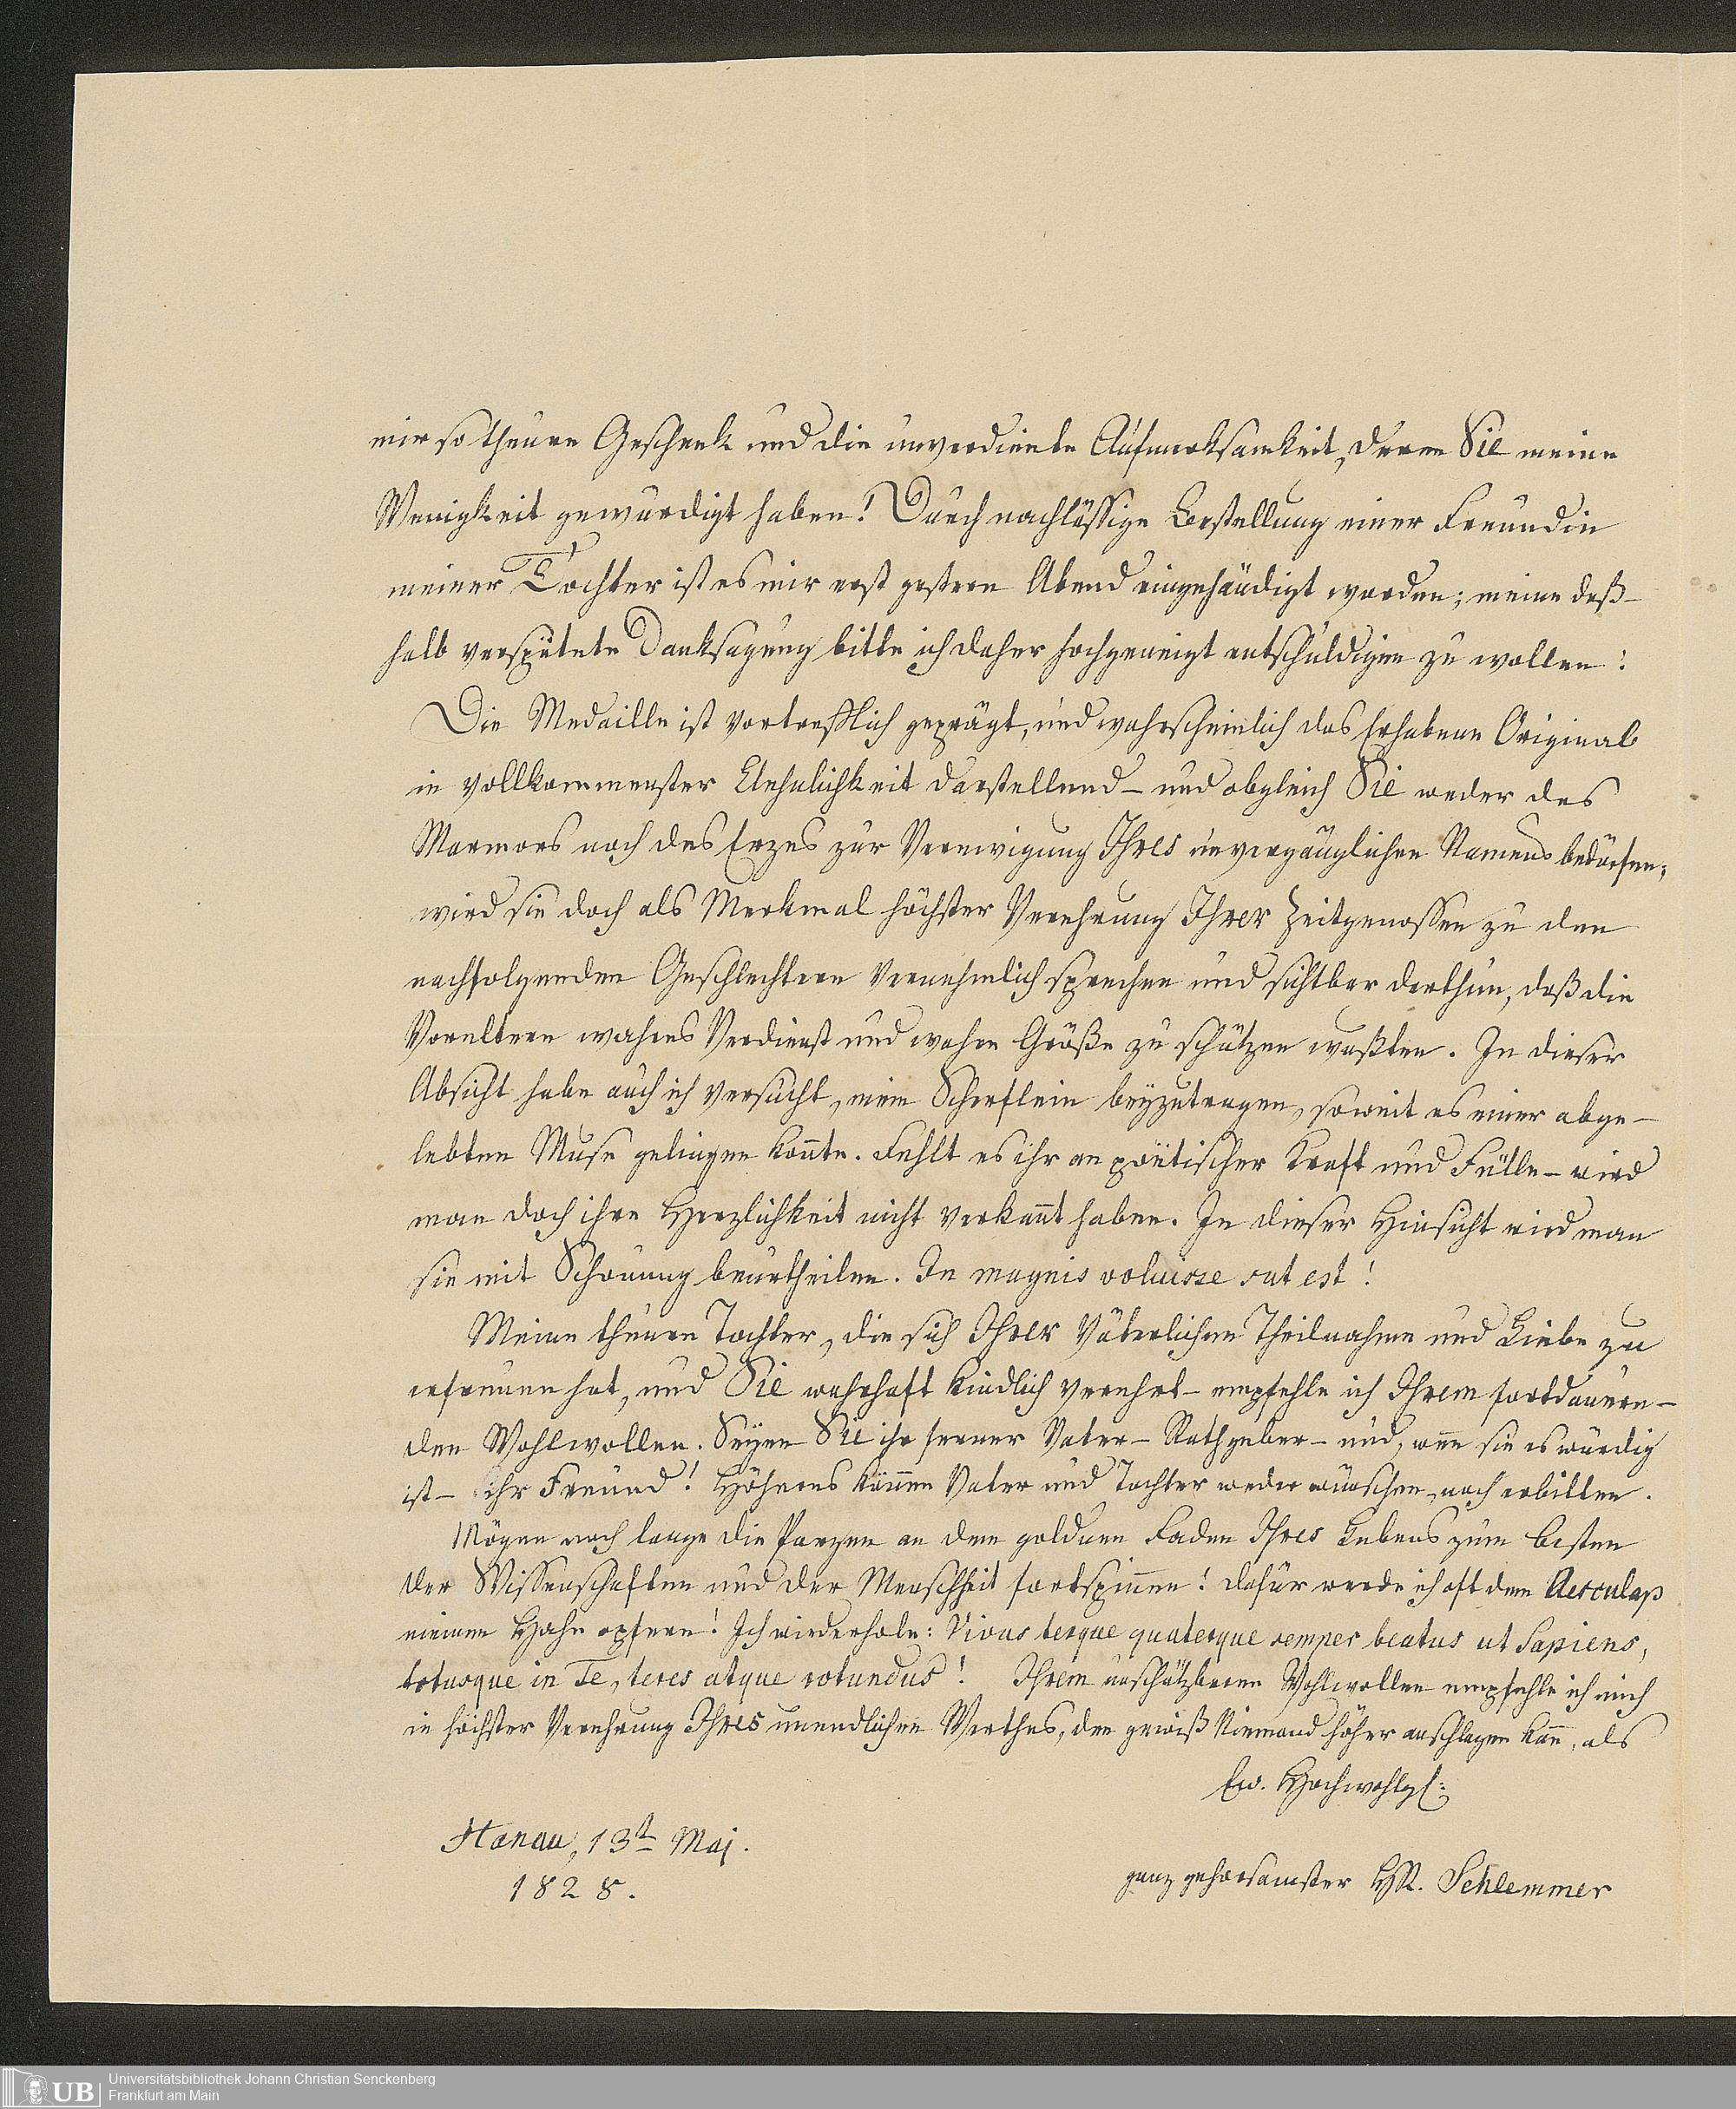 mir so theure Geschenk und die unverdiente Aufmerksamkeit, deren Sie meine
Wenigkeit gewürdigt haben! Durch nachlässige Bestellung einer Freundin
meiner Tochter ist es mir erst gestern Abend eingehändigt worden; meine deß-
halb verspätete Danksagung bitte ich daher hochgeneigt entschuldigen zu wollen!
Die Medaille ist vortrefflich geprägt, und wahrscheinlich das Erhabene Original
in vollkommenster Aehnlichkeit darstellend – und obgleich Sie weder des
Marmors noch des Erzes zur Verewigung Ihres unvergänglichen Namens bedürfen;
wird sie doch als Merkmal höchster Verehrung Ihrer Zeitgenossen zu den
nachfolgenden Geschlechtern vernehmlich sprechen und sichtbar darthun, daß die
Voreltern wahres Verdienst und wahre Größe zu schätzen wußten. In dieser
Absicht habe auch ich versucht, mein Scherflein beyzutragen, soweit es einer abge-
lebten Muse gelingen konnte. Fehlt es ihr an poëtischer Kraft und Fülle – wird
man doch ihre Herzlichkeit nicht verkannt haben. In dieser Hinsicht wird man
sie mit Schonung beurtheilen. In magnis voluisse sat est!
Meine theure Tochter, die sich Ihrer Väterlichen Theilnahme und Liebe zu
erfreuen hat, und Sie wahrhaft kindlich verehrt – empfehle ich Ihrem fortdauern-
den Wohlwollen. Seyen Sie ihr ferner Vater – Rathgeber – und, wenn sie es würdig
ist – ihr Freund! Höheres können Vater und Tochter weder wünschen, noch erbitten.
Mögen noch lange die Parzen an dem goldnen Faden Ihres Lebens zum besten
der Wissenschaften und der Menschheit fortspinnen! dafür werde ich oft dem Aesculap
meinen Hahn opfern! Ich wiederhole: Vivas terque quaterque semper beatus ut Sapiens,
totusque in Te, teres atque rotundus! Ihrem unschätzbaren Wohlwollen empfehle ich mich
in höchster Verehrung Ihres unendlichen Werthes, den gewiß Niemand höher anschlagen kann, als
Ew. Hochwohlg:
Hanau, 13t Maj.
1828.
ganz gehorsamster HR. Schlemmer
UB
Universitätsbibliothek Johann Christian Senckenberg
Frankfurt am Main